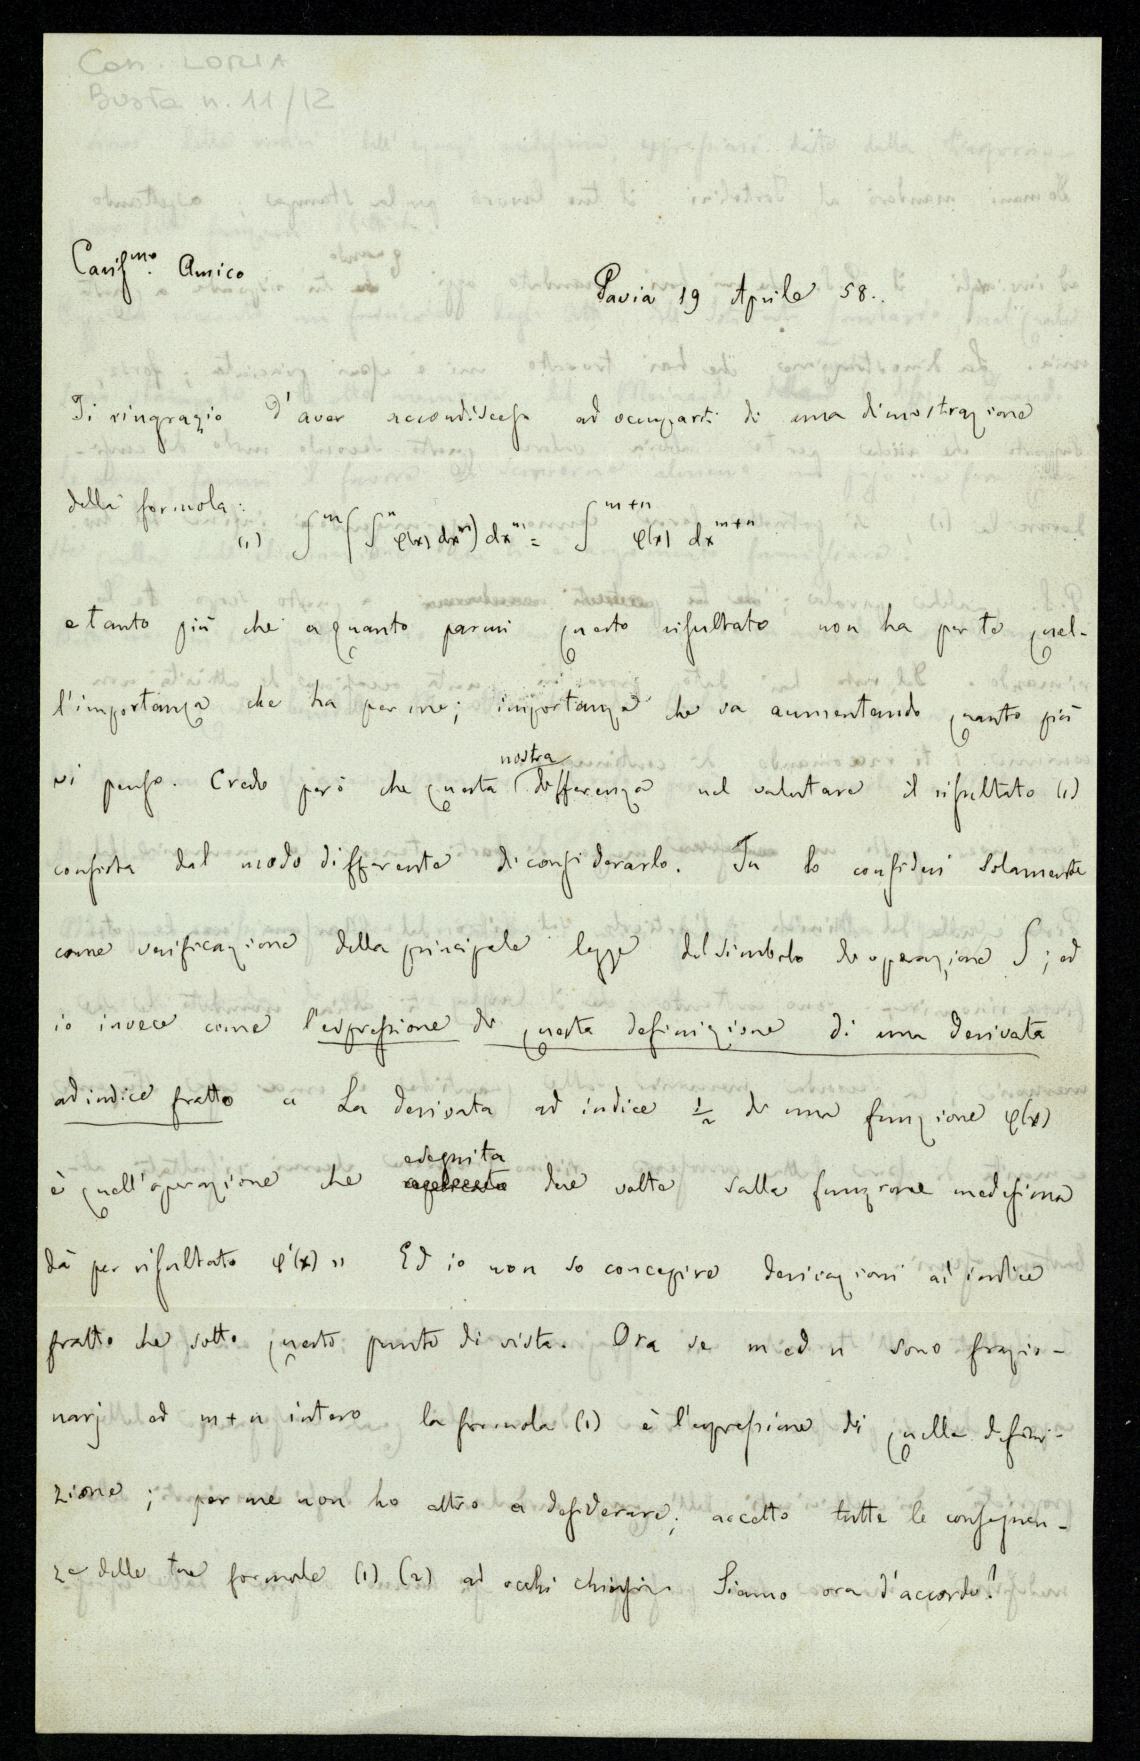 Con. LORIA
Busta n. 11/12
Cariss.mo Amico
Pavia 19 Aprile 58.
Ti ringrazio d'aver accondisceso ad occuparti di una dimostrazione
della formola:
(1) ∫^m (∫^n φ(x) dx^n) dx^m = ∫^{m+n} φ(x) dx^{m+n}
e tanto più che a quanto parmi questo risultato non ha per te quel-
l'importanza che ha per me; importanza che va aumentando quanto più
vi penso. Credo però che questa nostra differenza nel valutare il risultato (1)
consista dal modo differente di considerarlo. Tu lo consideri solamente
come verificazione della principale legge del simbolo di operazione ∫; ed
io invece come l'espressione di questa definizione di una derivata
ad indice fratto « La derivata ad indice 1/2 di una funzione φ(x)
è quell'operazione che eseguita due volte sulla funzione medesima
dà per risultato φ'(x) » Ed io non so concepire derivazioni ad indice
fratto che sotto questo punto di vista. Ora se m ed n sono frazio-
narj ed m+n intero la formola (1) è l'espressione di quella defini-
zione; per me non ho altro a desiderare; accetto tutte le conseguen-
ze delle tue formole (1) (2) ad occhi chiusi. Siamo ora d'accordo?